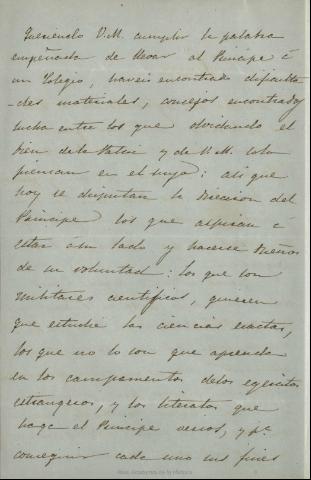 Queriendo V.M. cumplir la palabra
empeñada de llevar al Principe á
un Colegio, haveis encontrado dificulta
-des materiales, consejos encontrados
lucha entre los que olvidando el
bien de la Patria y de V.M. solo
piensan en el suyo: asi que
hoy se disputan la direccion del
Principe los que aspiran á
estar á su lado y hacerse dueños
de su voluntad: los que son
militares cientificos, quieren
que estudie las ciencias exactas,
los que no lo son que aprenda
en los campamentos delos egercitos
estrangeros, y los literatos que
haga el Principe versos, y pª
conseguir cada uno sus fines
Real Academia de la Historia